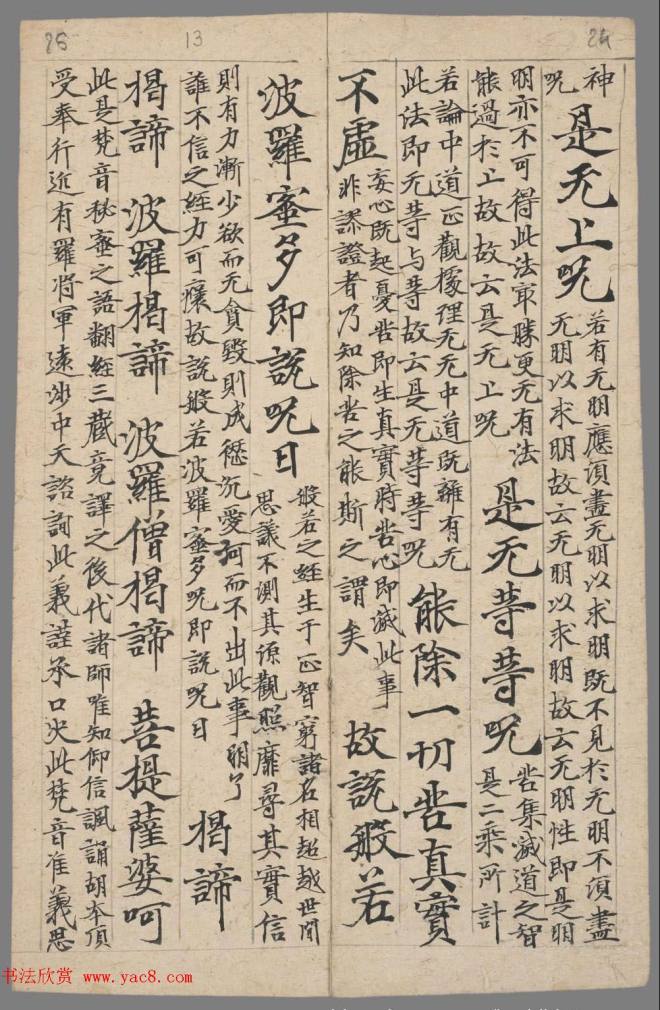 25
13
24
神
呪
是无上呪
若有无明應須盡无明以求明既不見於无明不須盡
无明以求明故云无明以求明故云无明性即是明
明亦不可得此法冣勝更无有法
能過於上故故云是无上呪
是无等等呪
苦集滅道之智
是二乘所計
若論中道正觀據理无无中道既離有无
此法即无等与等故云是无等等呪
能除一切苦真實
不虛
妄心既起憂苦即生真實時苦心即滅此事
非謬證者乃知除苦之能斯之謂矣
故說般若
波羅蜜多即說呪曰
般若之經生于正智窮諸名相超越世間
思議不測其源觀照靡尋其實信
則有力漸少欲而无貪毀則成愆沉愛河而不出此事明了
誰不信之經力可穰故說般若波羅蜜多呪即說呪曰
揭諦
揭諦 波羅揭諦 波羅僧揭諦 菩提薩婆呵
此是梵音秘蜜之語翻經三藏竟譯之後代諸師唯知仰信諷誦胡本頂
受奉行近有羅將軍遠涉中天諮詢此義謹承口決此梵音准義思
书法欣赏 www.yac8.com